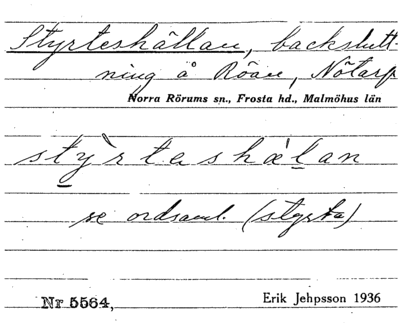 Styrteshällan, backslutt-
ning å Röan, Nötarp
Norra Rörums sn., Frosta hd., Malmöhus län
stỳ̱rteshæ̀ḻan
se ordsaml. (styrta)
Nr 5564,
Erik Jehpsson 1936